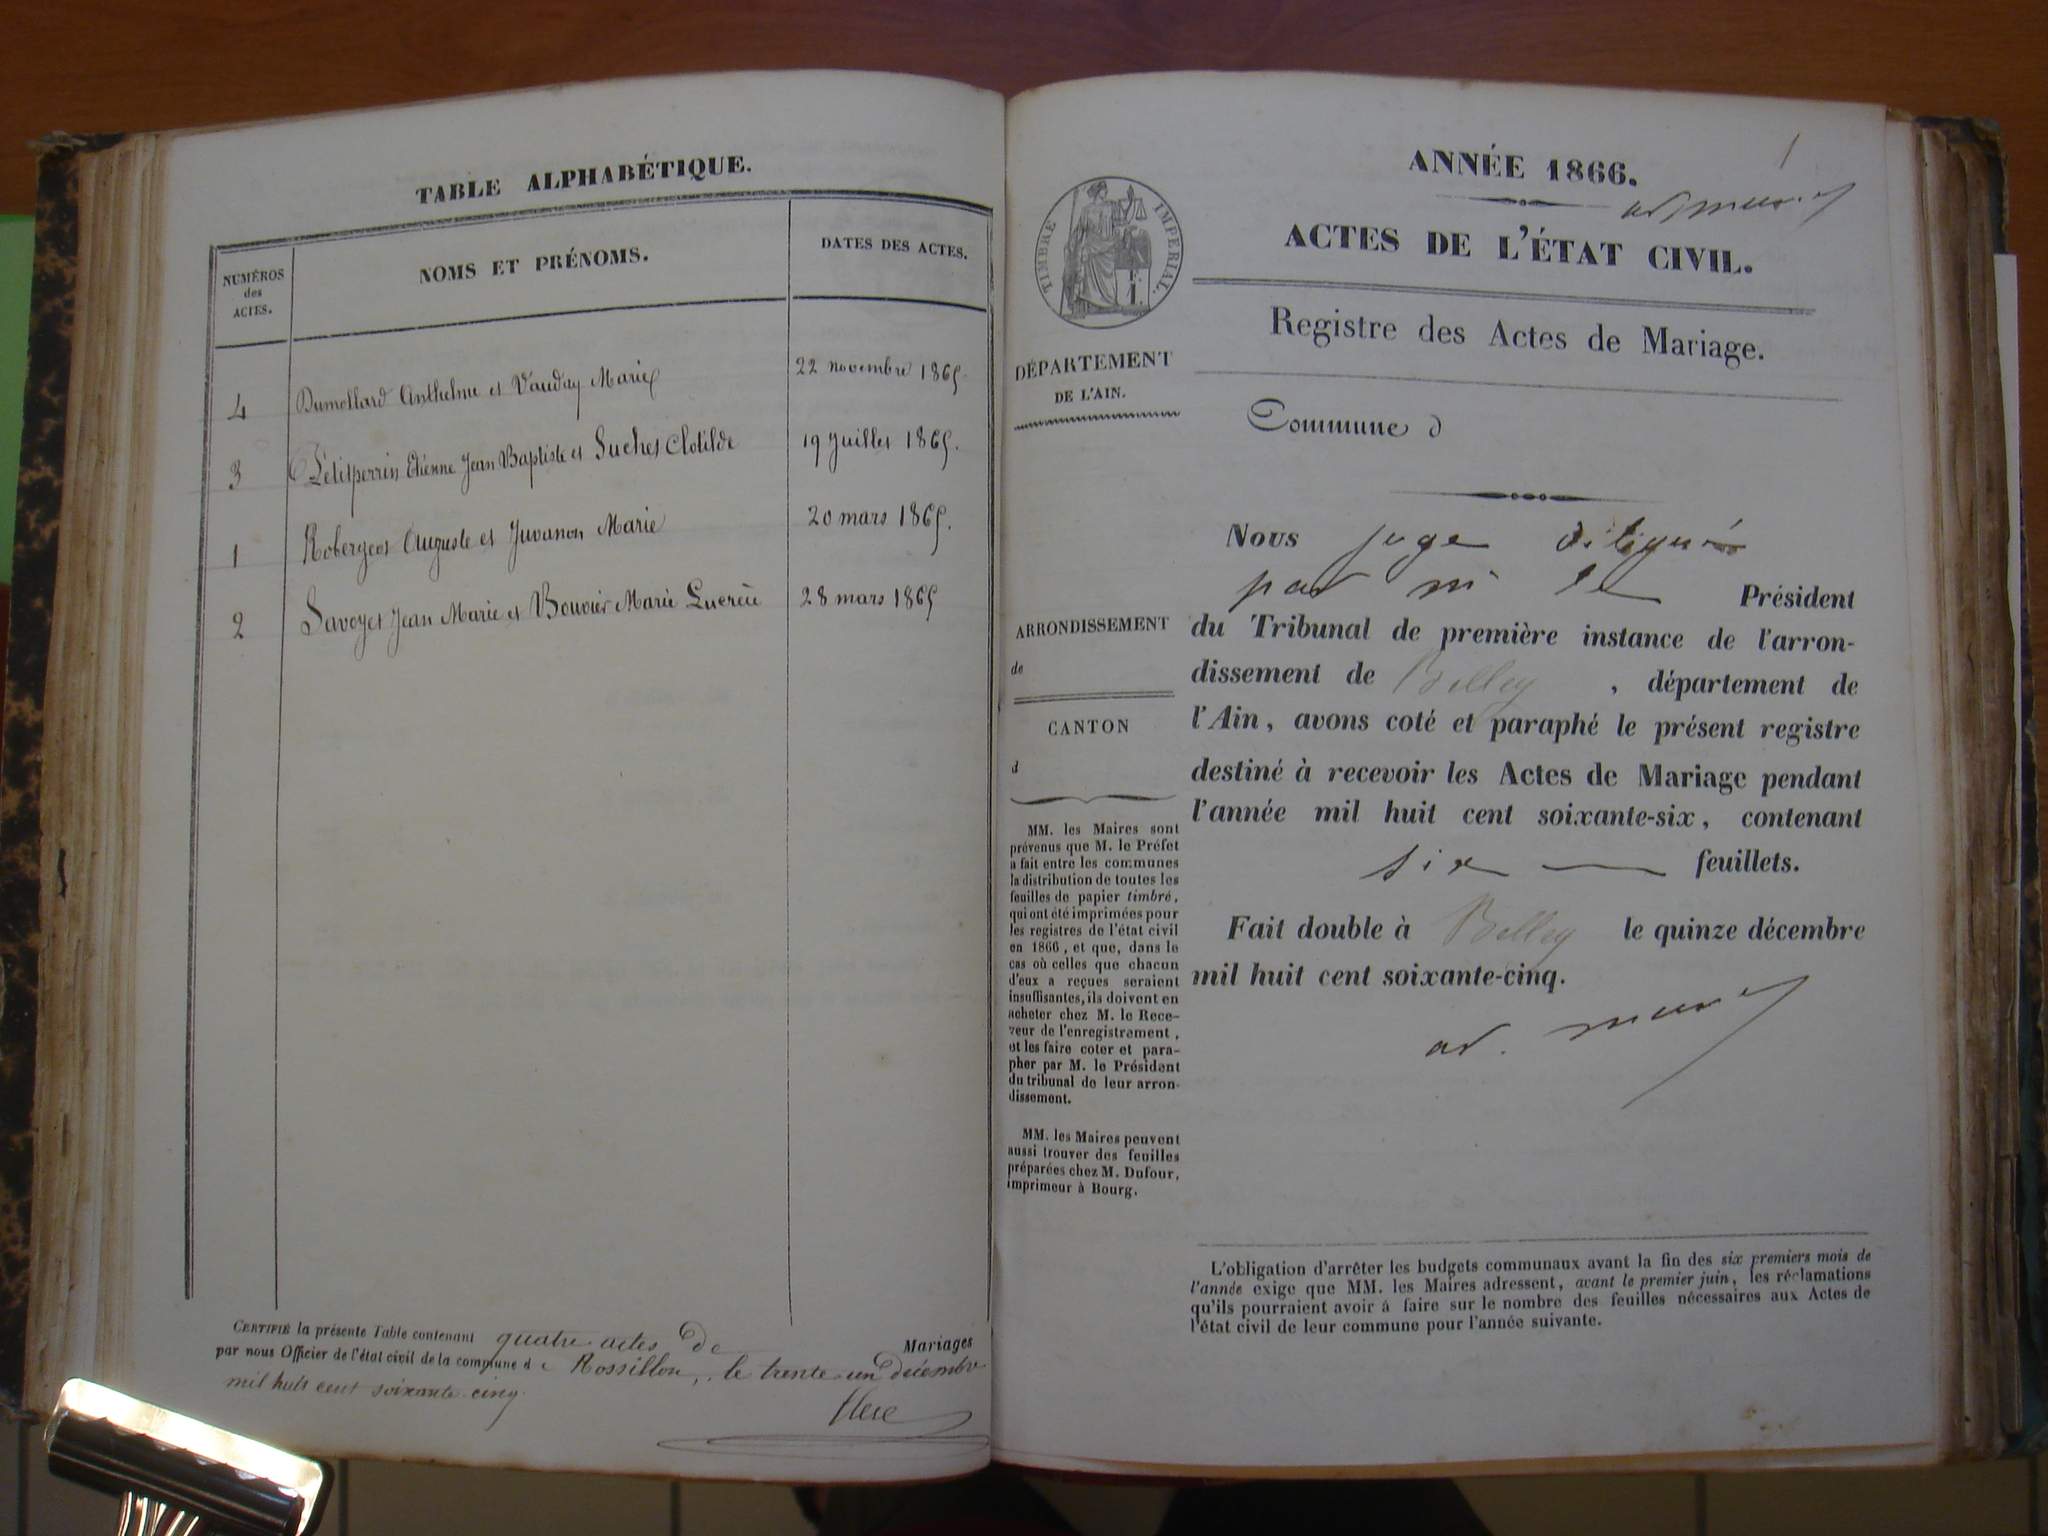 TABLE ALPHABÉTIQUE.
NUMÉROS
des
ACTES.
NOMS ET PRÉNOMS.
DATES DES ACTES.
4 Dumollard Anthelme et Vauday Marie 22 novembre 1865.
3 Petitperrin Etienne Jean Baptiste et Suchet Clotilde 19 Juillet 1865.
1 Robergeot Auguste et Juvanon Marie 20 mars 1865.
2 Savoyet Jean Marie et Bouvier Marie Lucrèce 28 mars 1865
CERTIFIÉ la présente Table contenant quatre actes de Mariages
par nous Officier de l'état civil de la commune de Rossillon, le trente un décembre
mil huit cent soixante cinq.
1
ANNÉE 1866.
ACTES DE L'ÉTAT CIVIL.
TIMBRE IMPERIAL.
Registre des Actes de Mariage.
DÉPARTEMENT
DE L'AIN.
Commune d
Nous juge délégué
par m le Président
du Tribunal de première instance de l'arron-
dissement de Belley , département de
l'Ain, avons coté et paraphé le présent registre
destiné à recevoir les Actes de Mariage pendant
l'année mil huit cent soixante-six, contenant
six feuillets.
Fait double à Belley le quinze décembre
mil huit cent soixante-cinq.
ARRONDISSEMENT
de
CANTON
d
MM. les Maires sont
prévenus que M. le Préfet
a fait entre les communes
la distribution de toutes les
feuilles de papier timbré,
qui ont été imprimées pour
les registres de l'état civil
en 1866, et que, dans le
cas où celles que chacun
d'eux a reçues seraient
insuffisantes, ils doivent en
acheter chez M. le Rece-
veur de l'enregistrement,
et les faire coter et para-
pher par M. le Président
du tribunal de leur arron-
dissement.
MM. les Maires peuvent
aussi trouver des feuilles
préparées chez M. Dufour,
imprimeur à Bourg.
L'obligation d'arrêter les budgets communaux avant la fin des six premiers mois de
l'année exige que MM. les Maires adressent, avant le premier juin, les réclamations
qu'ils pourraient avoir à faire sur le nombre des feuilles nécessaires aux Actes de
l'état civil de leur commune pour l'année suivante.